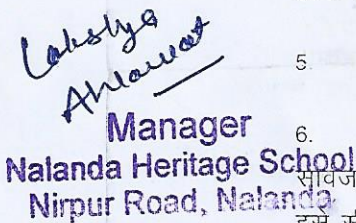 Lakshya
Ahlawat
5.
Manager
6.
Nalanda Heritage School
Nirpur Road, Nalanda